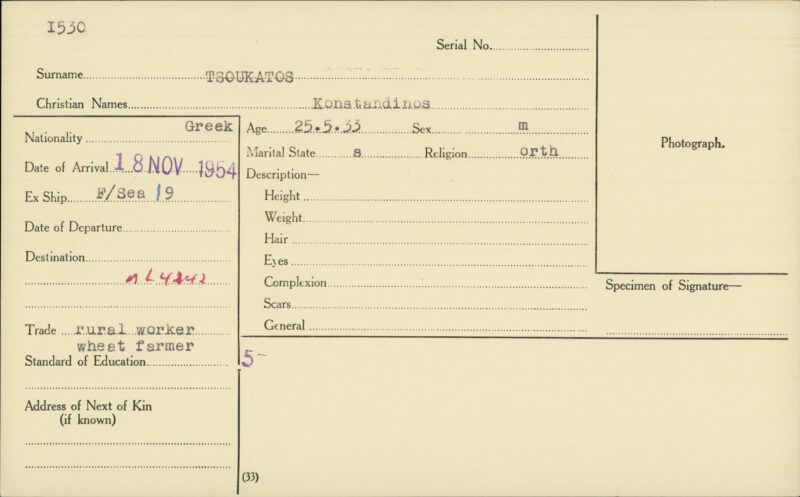 1530
Serial No.
Surname TSOUKATOS
Christian Names Konstandinos
Nationality Greek
Date of Arrival 18 NOV 1954
Ex Ship F/Sea 19
Date of Departure
Destination
Trade rural worker
wheat farmer
Standard of Education
Address of Next of Kin
(if known)
Age 25.5.33 Sex m
Marital State s Religion orth
Description—
Height
Weight
Hair
Eyes
Complexion
Scars
General
5-
(33)
Photograph.
Specimen of Signature—